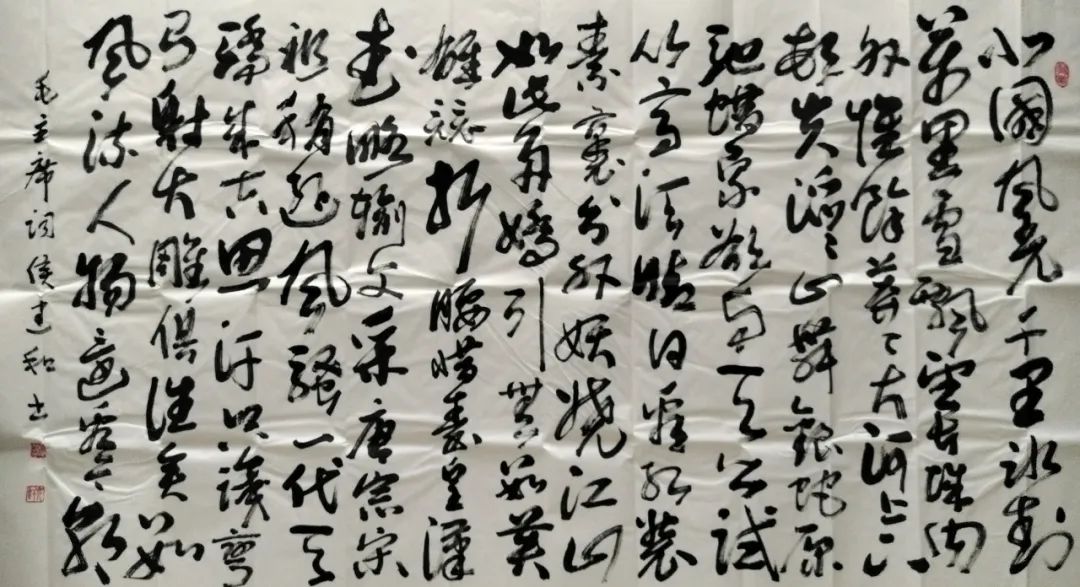 北國風光千里冰封
萬里雪飄望長城内
外惟餘莽〻大河上下
頓失滔〻山舞銀蛇原
馳蠟象欲與天公試
比高須晴日看紅裝
素裹分外妖嬈江山
如此多嬌引無數英
雄競折腰惜秦皇漢
武略輸文采唐宗宋
祖稍遜風騷一代天
驕成吉思汗只識彎
弓射大雕俱往矣數
風流人物還看今朝
毛主席詞侯建和書